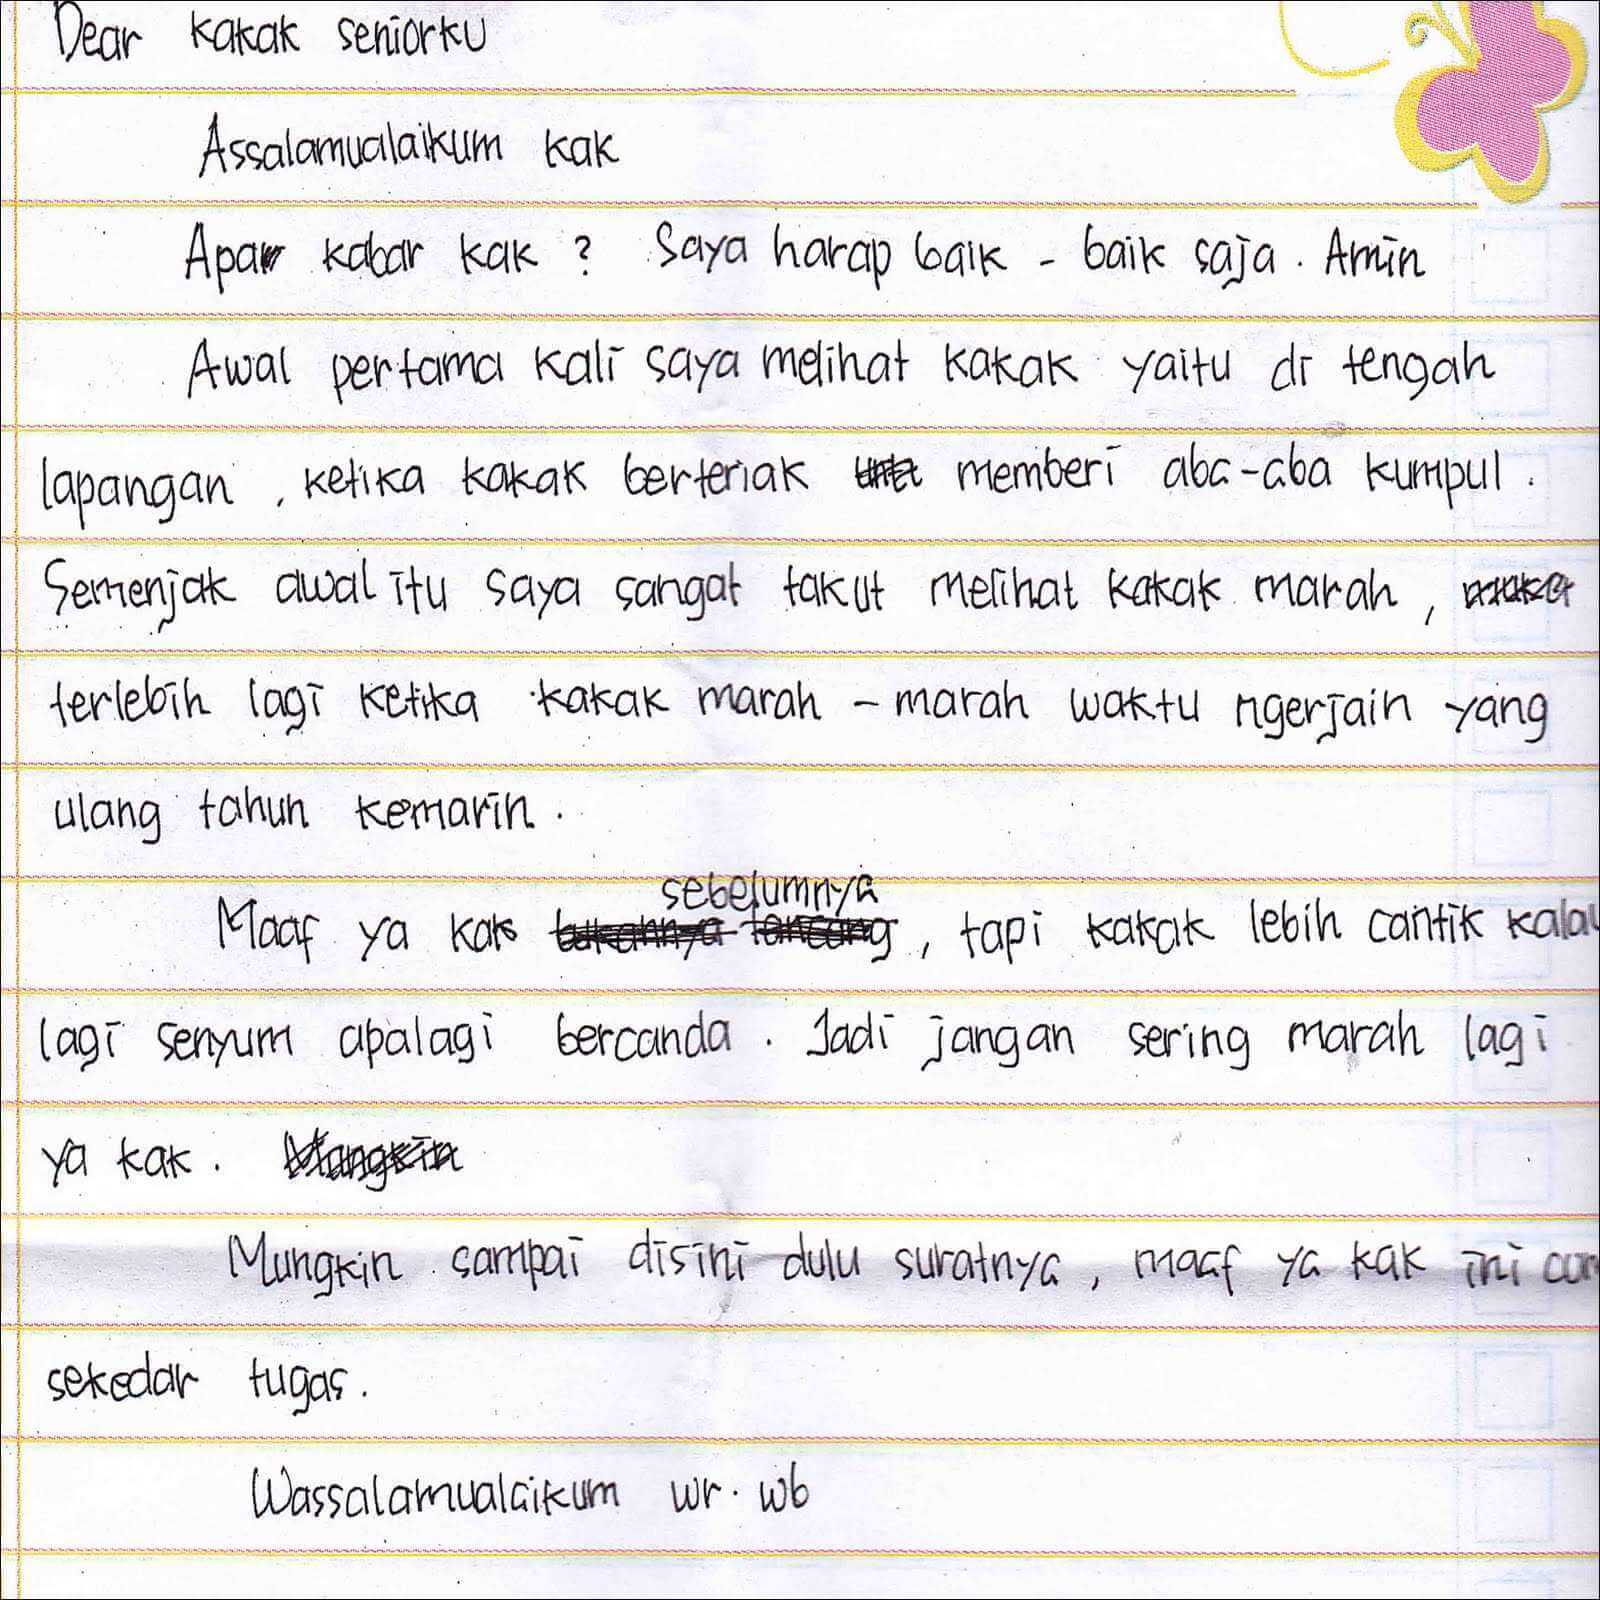 Dear kakak seniorku
Assalamualaikum kak
Apa kabar kak ? Saya harap baik - baik saja. Amin
Awal pertama kali saya melihat kakak yaitu di tengah
lapangan , ketika kakak berteriak memberi aba-aba kumpul .
Semenjak awal itu saya sangat takut melihat kakak marah ,
terlebih lagi ketika kakak marah - marah waktu ngerjain yang
ulang tahun kemarin .
sebelumnya
Maaf ya kak bukannya lancang , tapi kakak lebih cantik kalau
lagi senyum apalagi bercanda . Jadi jangan sering marah lagi
ya kak . Mungkin
Mungkin sampai disini dulu suratnya , maaf ya kak ini
sekedar tugas .
Wassalamualaikum wr . wb